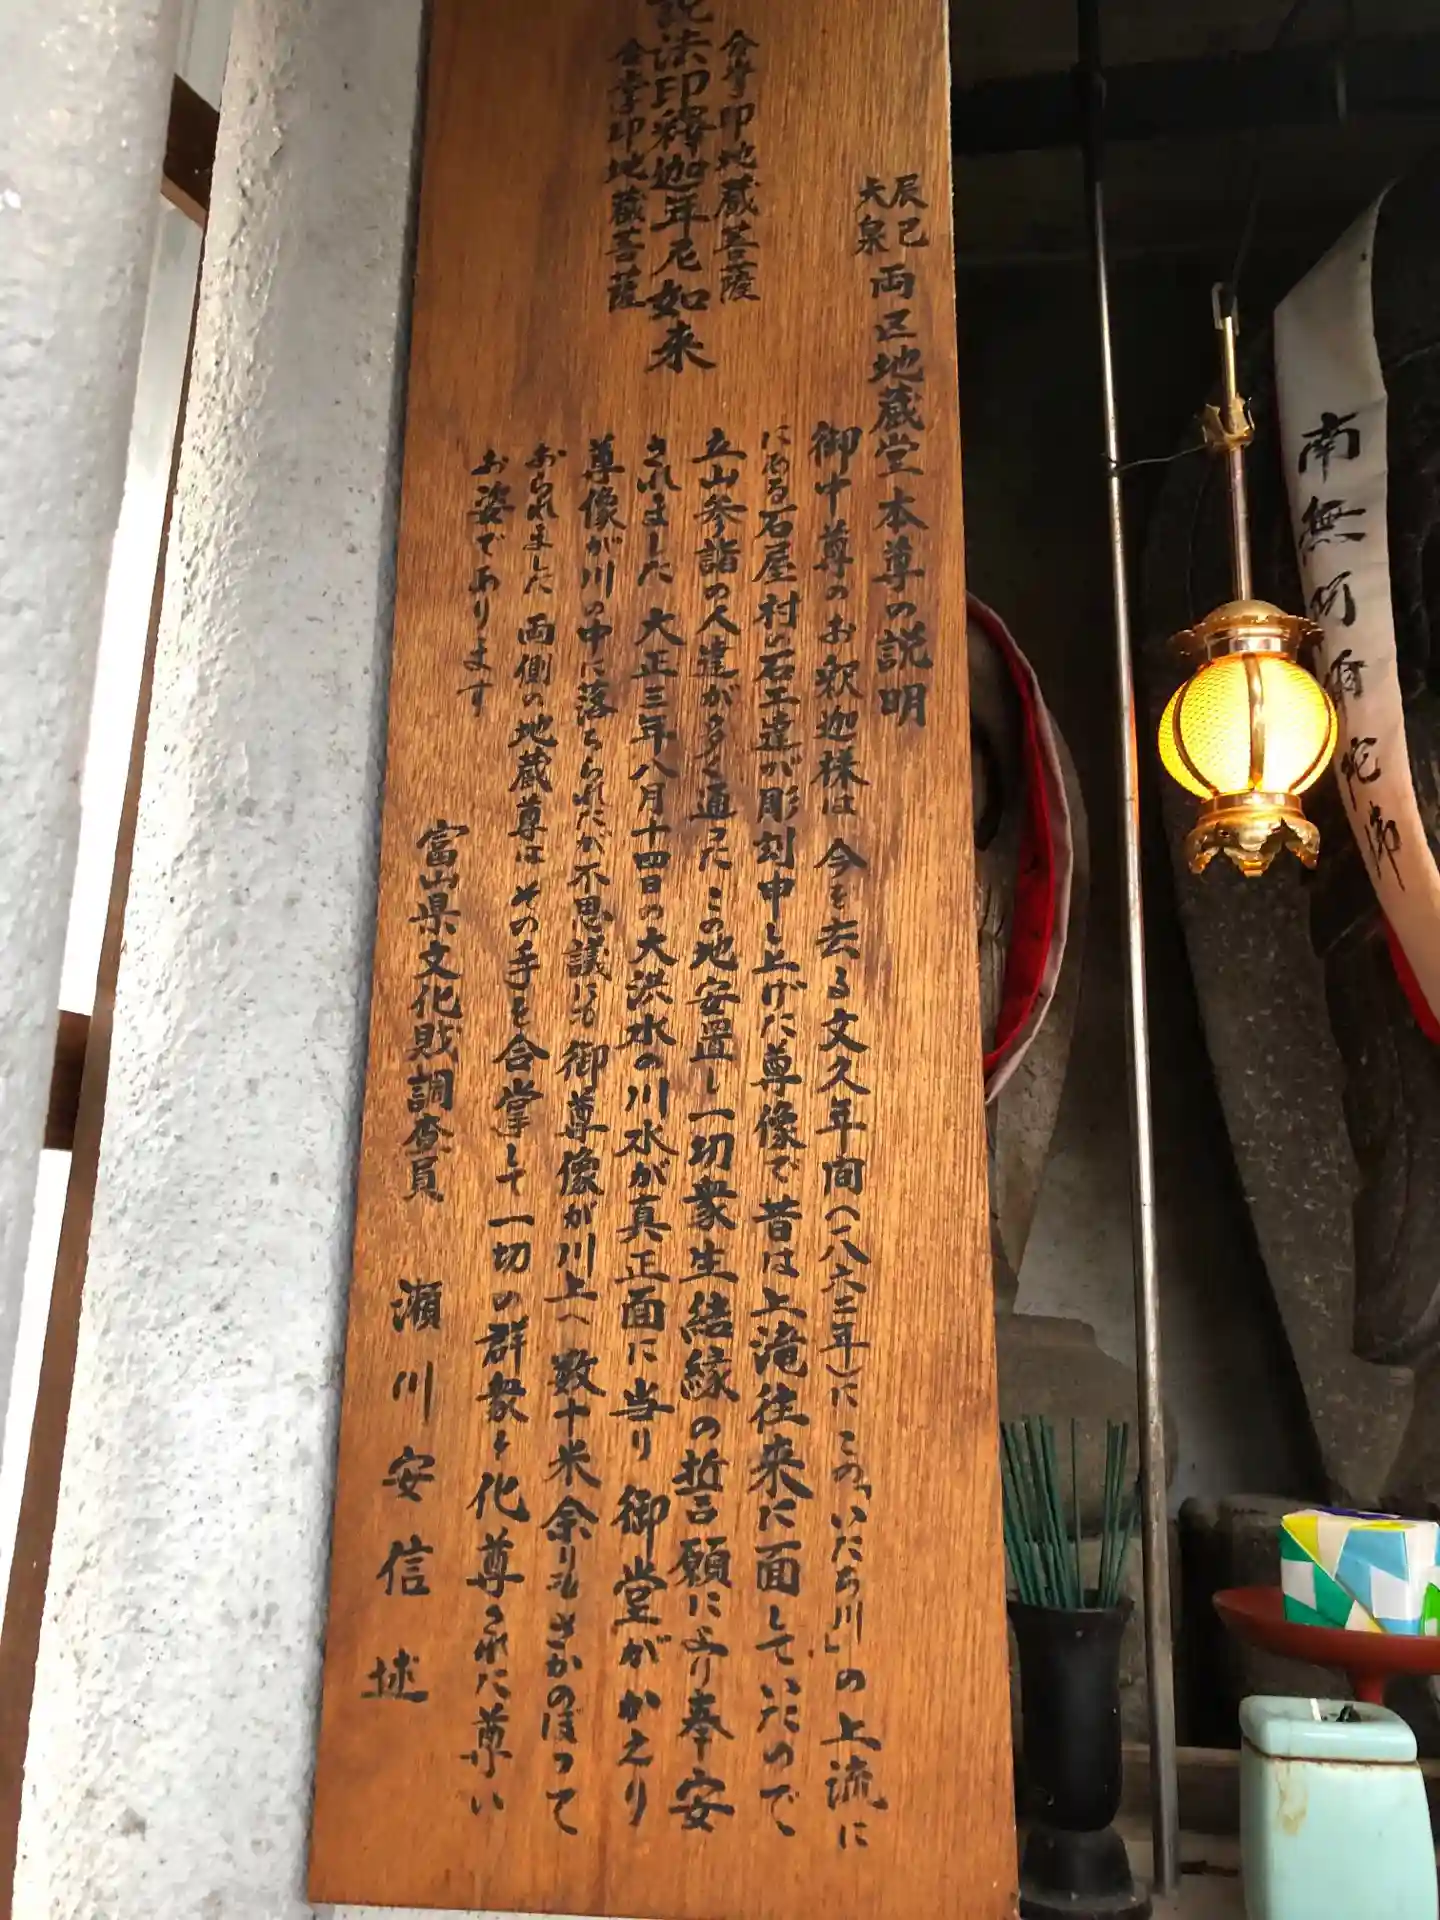 辰巳
大泉
両区地蔵堂本尊の説明
合掌印地蔵菩薩
説法印釋迦牟尼如来
合掌印地蔵菩薩
御中尊のお釈迦様は 今を去る文久年間(一八六二年)に この「いたち川」の上流に
にある石屋村の石工達が彫刻申し上げた尊像で昔は上滝往来に面していたので
立山参詣の人達が多く通った この地安置し一切衆生結縁の誓願により奉安
されました 大正三年八月十四日の大洪水の川水が真正面に当り 御堂がかえり
尊像が川の中に落ちられたが不思議にも 御尊像が川上へ数十米余りもさかのぼって
おられました 両側の地蔵尊は その手を合掌して 一切の群衆を化導された尊い
お姿であります
富山県文化財調査員 瀬川安信 述
南無阿弥陀佛